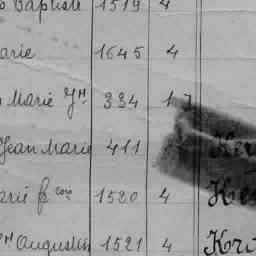 Baptiste 1519 4
arie 1645 4
Marie Jh 334 17
Jean Marie 411
arie fcois 1520 4
Augustin 1521 4